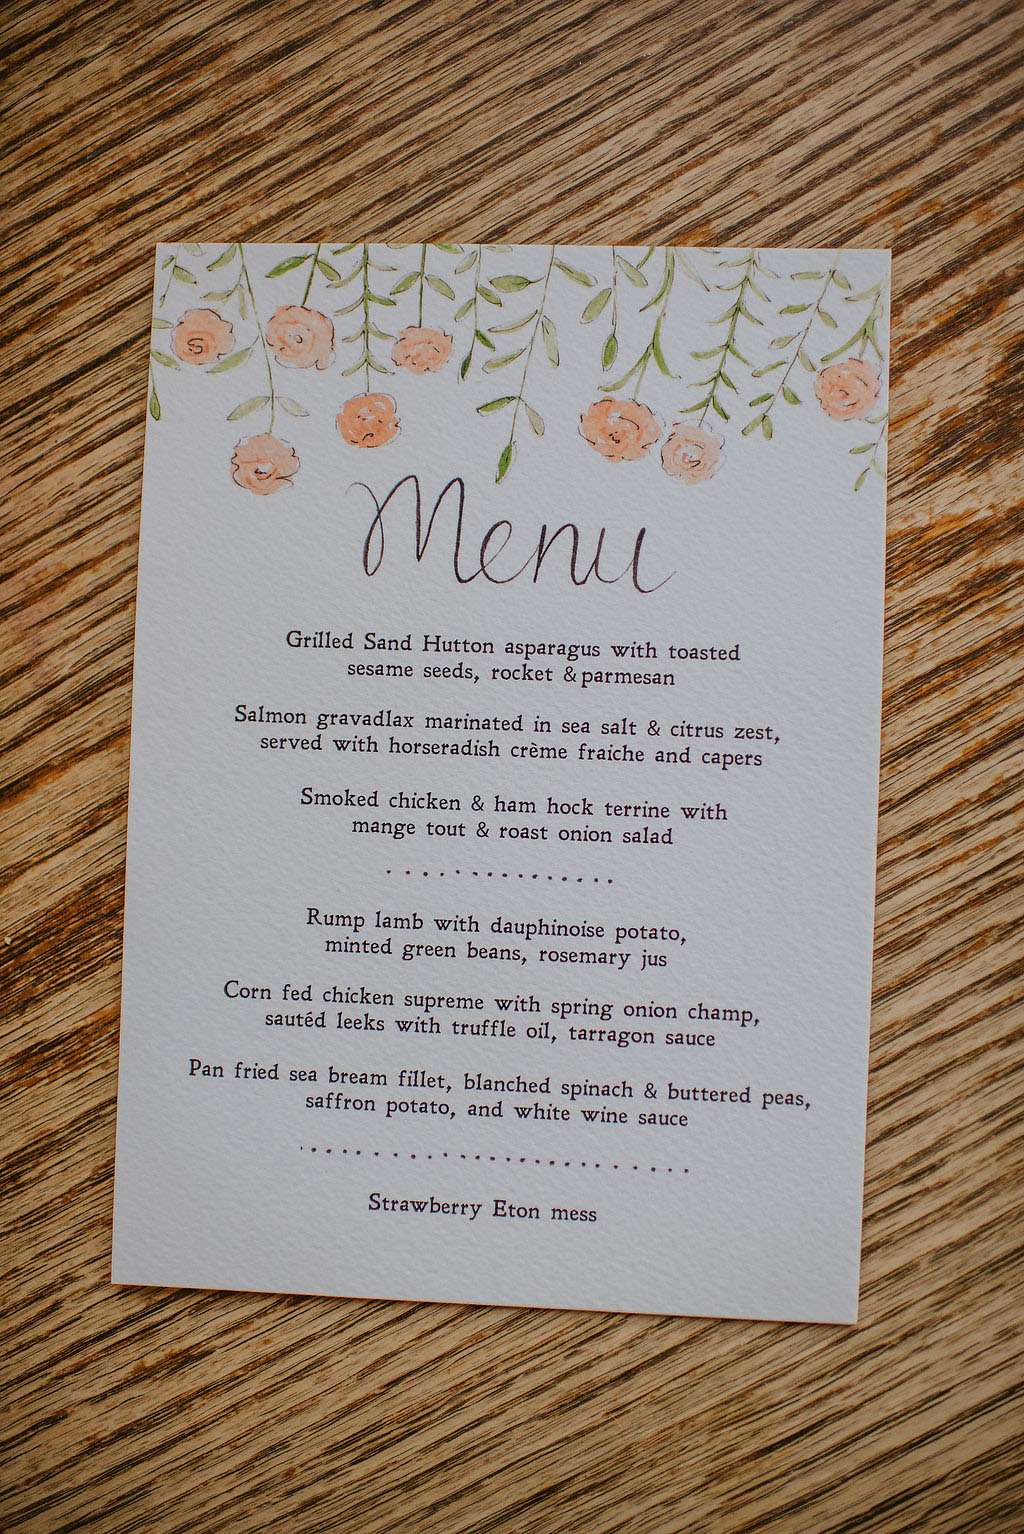 Menu
Grilled Sand Hutton asparagus with toasted
sesame seeds, rocket & parmesan
Salmon gravadlax marinated in sea salt & citrus zest,
served with horseradish crème fraiche and capers
Smoked chicken & ham hock terrine with
mange tout & roast onion salad
Rump lamb with dauphinoise potato,
minted green beans, rosemary jus
Corn fed chicken supreme with spring onion champ,
sautéd leeks with truffle oil, tarragon sauce
Pan fried sea bream fillet, blanched spinach & buttered peas,
saffron potato, and white wine sauce
Strawberry Eton mess